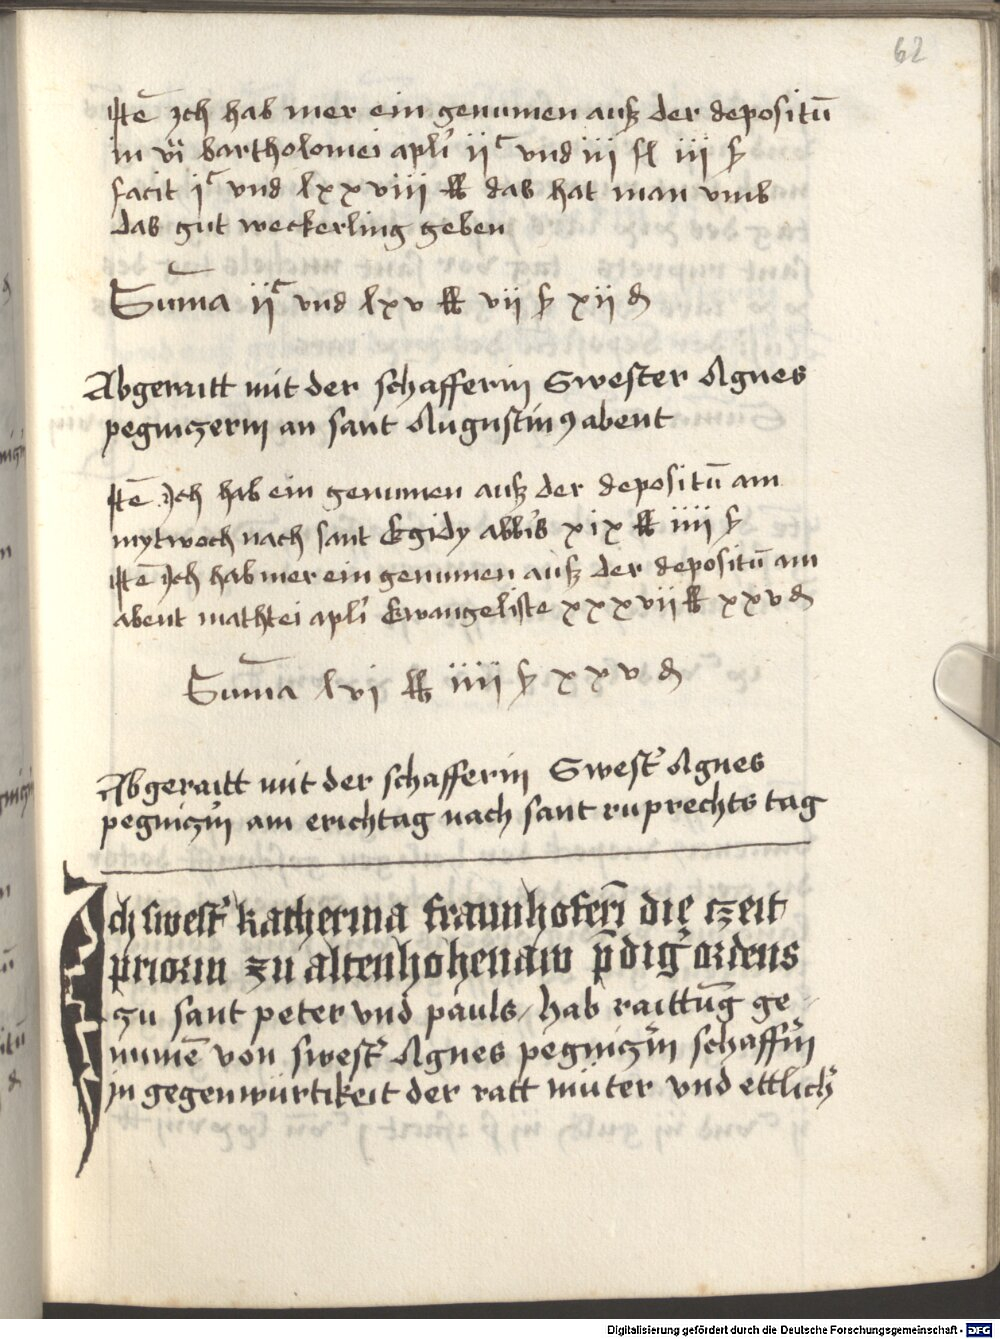 62
Itē Ich hab mer ein genumen auß der depositū
in vi bartholomei apli ii^c vnd iii fl iii ß
facit i^c vnd lxxviii lb das hat man vmb
das gut weckerling geben
Suma ii^c vnd lxv lb vii ß xii d
Abgeraitt mit der schafferin Swester Agnes
pegniczerin an sant Augustin9 abent
Itē Ich hab ein genumen auß der depositū am
mytwoch nach sant Egidy abbīs xix lb iiii ß
Itē Ich hab mer ein genumen auß der depositū am
abent mathtei apli Ewangeliste xxxvii lb xxv d
Suma lvi lb iiii ß xxv d
Abgeraitt mit der schafferin Swest' Agnes
pegnicz'in am erichtag nach sant ruprechts tag
Ich swest' katherina fraunhoferī die czeit
priorin zu altenhohenaw p̄dig' ordens
zu sant peter vnd pauls / hab raittūg ge
numē von swest' Agnes pegnicz'in schaff'in
in gegenwürtikeit der ratt müter vnd ettlich'
Digitalisierung gefördert durch die Deutsche Forschungsgemeinschaft - DFG